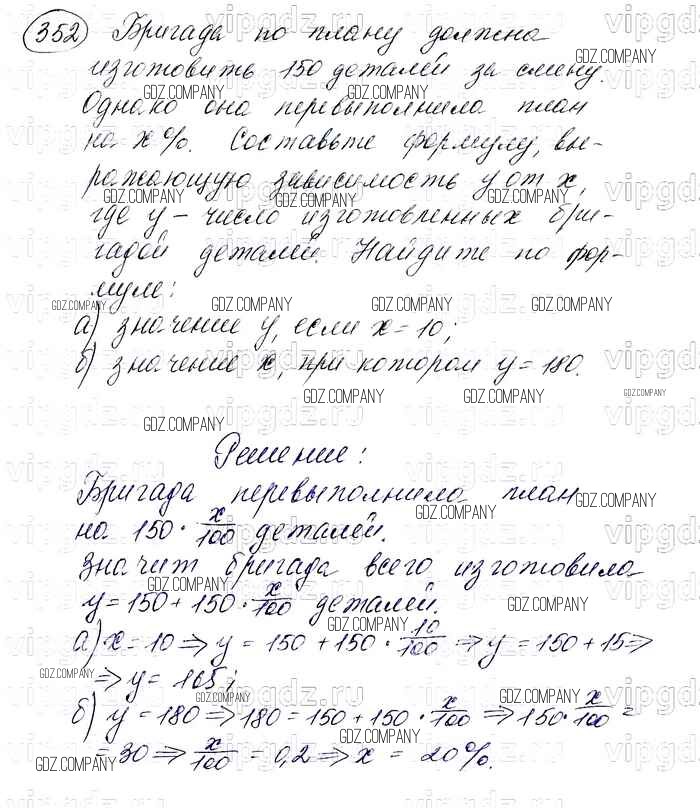 352 Бригада по плану должна
изготовить 150 деталей за смену.
Однако она перевыполнила план
на x%. Составьте формулу, вы-
ражающую зависимость y от x,
где y – число изготовленных бри-
гадой деталей. Найдите по фор-
муле:
а) значение y, если x = 10;
б) значение x, при котором y = 180.
Решение:
Бригада перевыполнила план
на 150 · x/100 деталей.
Значит бригада всего изготовила
y = 150 + 150 · x/100 деталей.
а) x = 10 ⇒ y = 150 + 150 · 10/100 ⇒ y = 150 + 15 ⇒
⇒ y = 165;
б) y = 180 ⇒ 180 = 150 + 150 · x/100 ⇒ 150 · x/100 =
= 30 ⇒ x/100 = 0,2 ⇒ x = 20%.